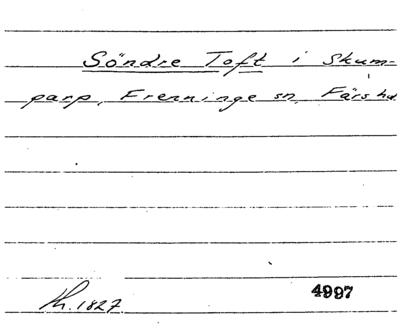 Söndre Toft i Skum-
parp, Frenninge sn, Färs hd
Kh. 1827.
4997